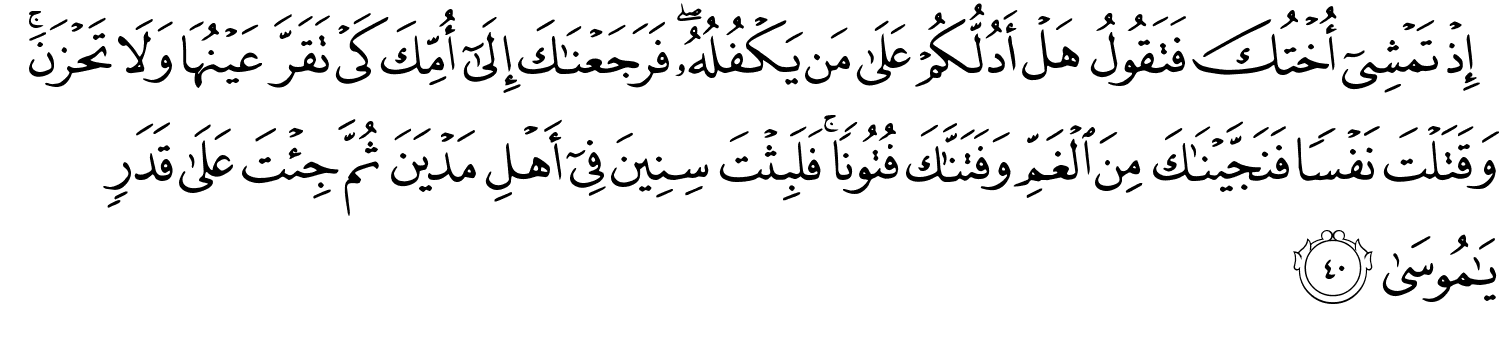 إِذْ تَمْشِىٓ أُخْتُكَ فَتَقُولُ هَلْ أَدُلُّكُمْ عَلَىٰ مَن يَكْفُلُهُۥ ۖ فَرَجَعْنَـٰكَ إِلَىٰٓ أُمِّكَ كَىْ تَقَرَّ عَيْنُهَا وَلَا تَحْزَنَ ۚ
وَقَتَلْتَ نَفْسًا فَنَجَّيْنَـٰكَ مِنَ ٱلْغَمِّ وَفَتَنَّـٰكَ فُتُونًا ۚ فَلَبِثْتَ سِنِينَ فِىٓ أَهْلِ مَدْيَنَ ثُمَّ جِئْتَ عَلَىٰ قَدَرٍ
يَـٰمُوسَىٰ ٤٠